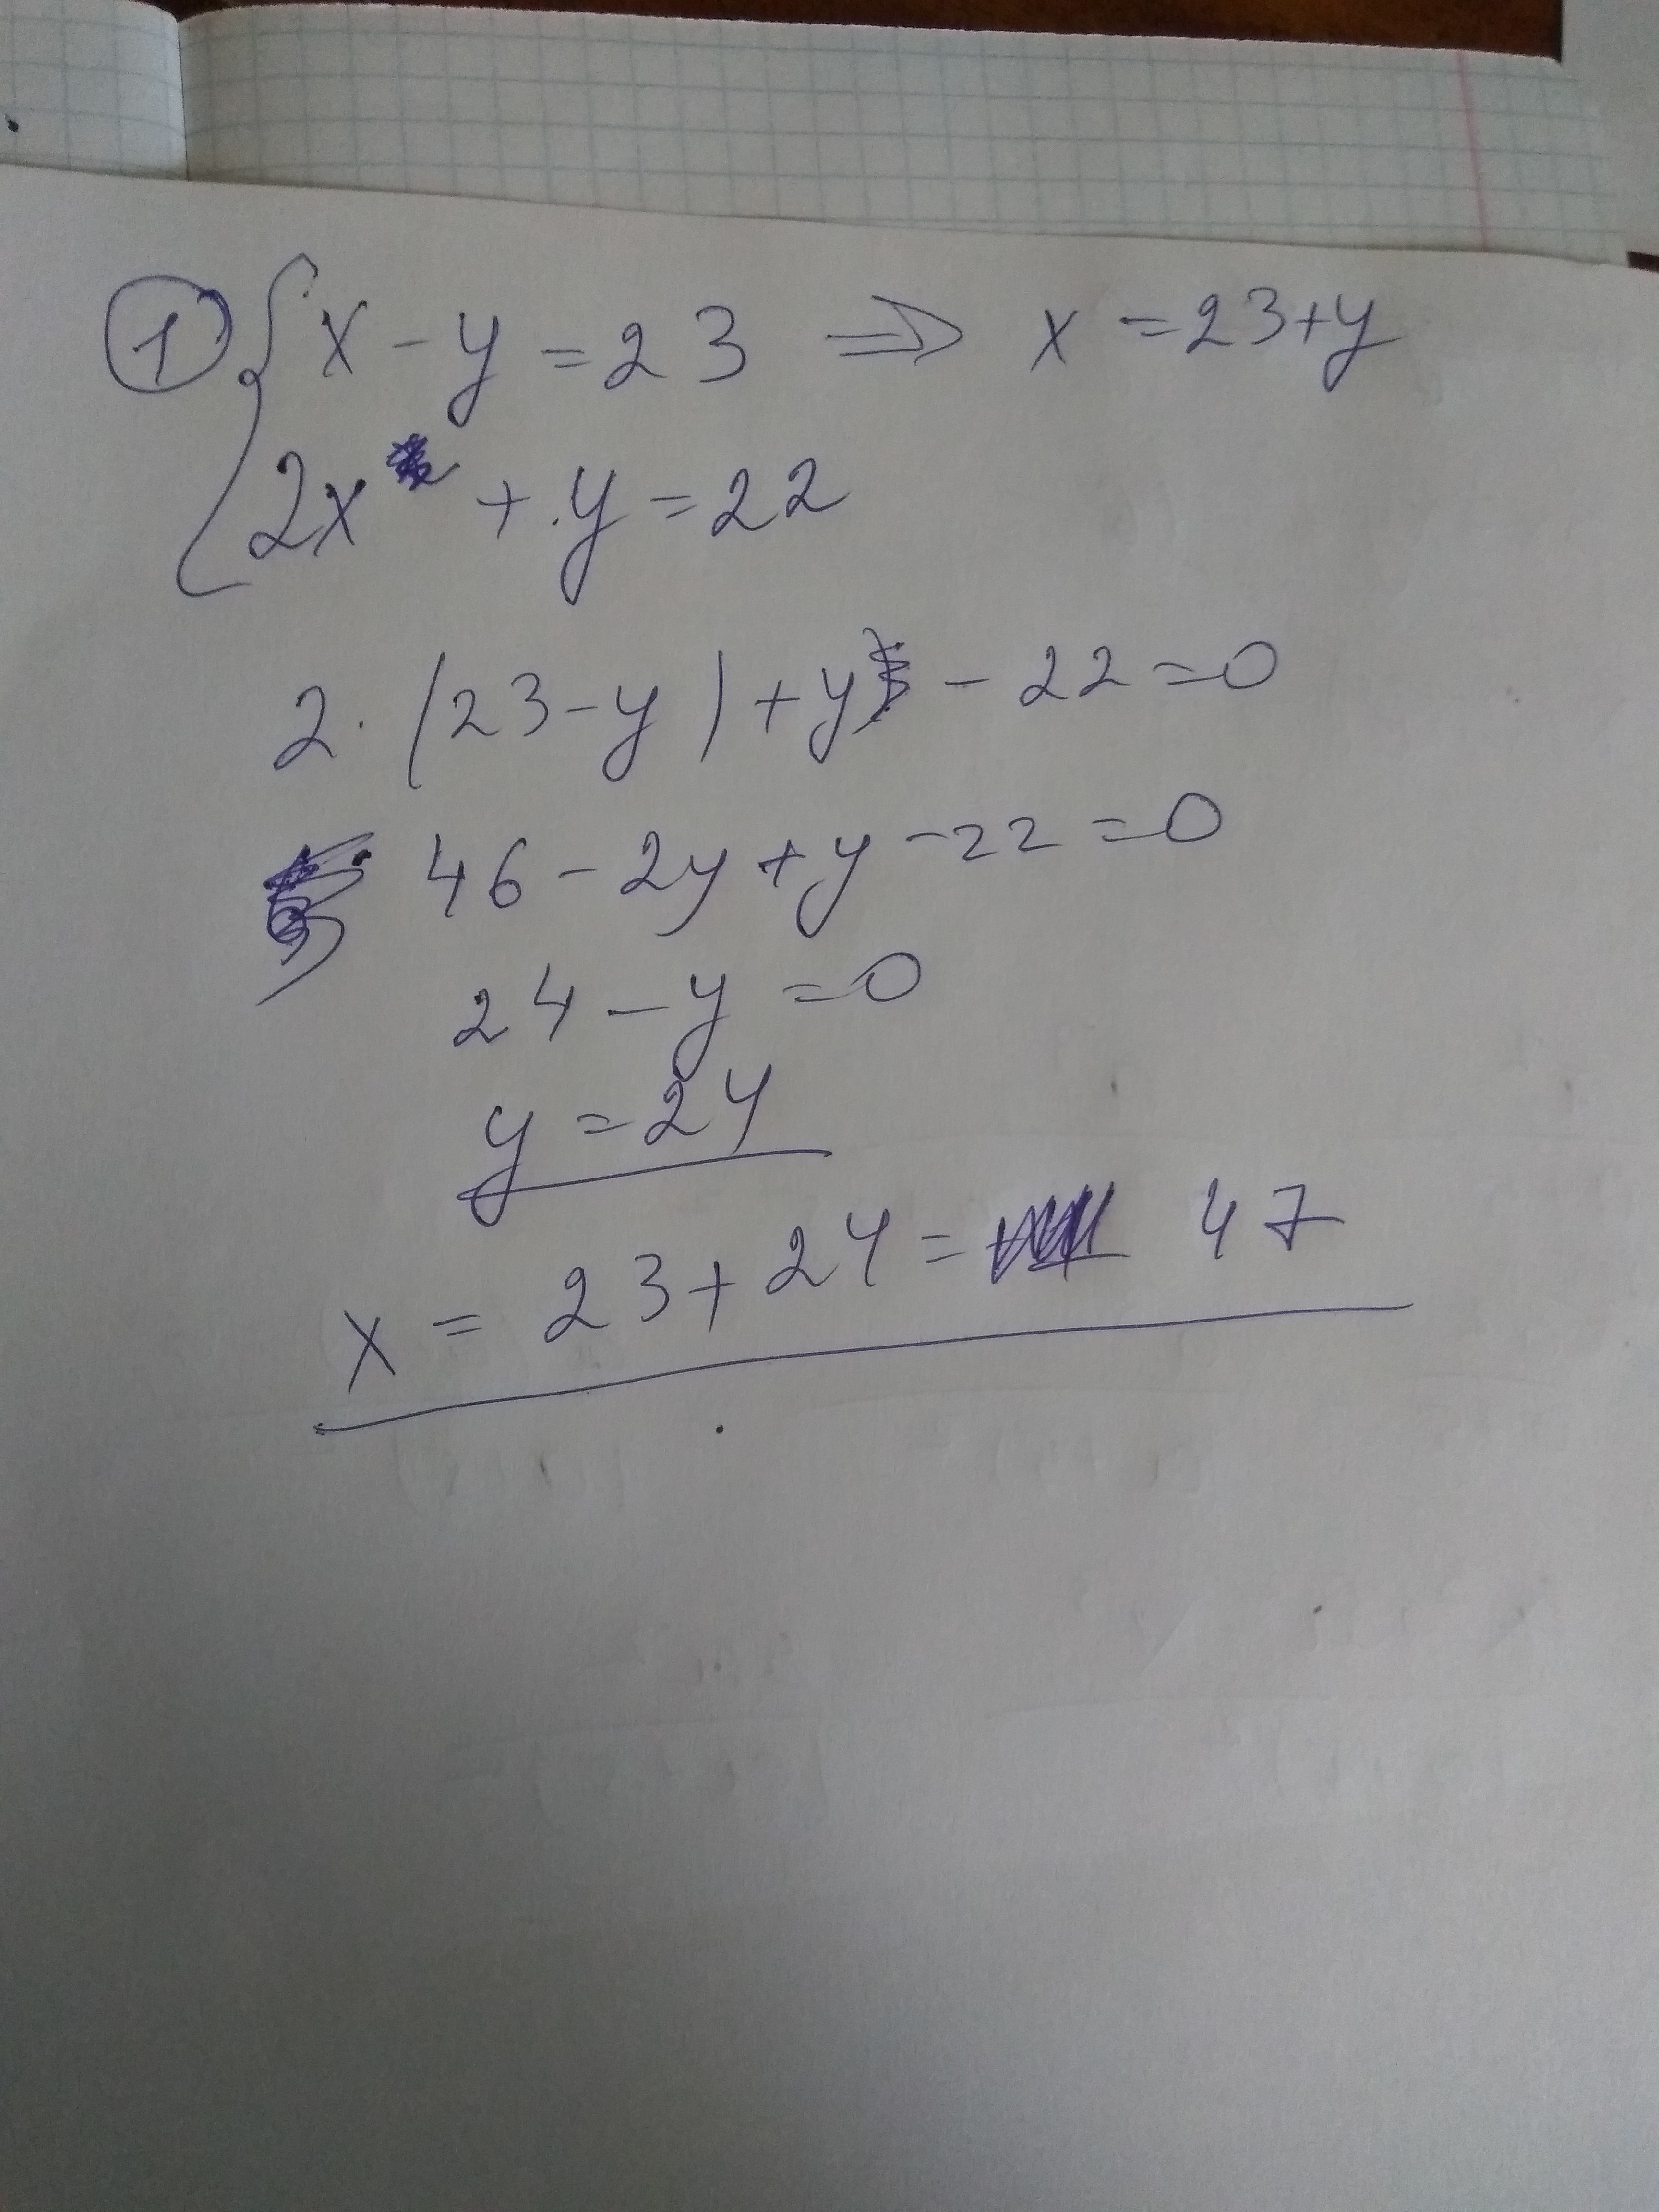 1 { x - y = 23 ⇒ x = 23 + y
2x + y = 22
2 · (23 - y) + y - 22 = 0
46 - 2y + y - 22 = 0
24 - y = 0
y = 24
x = 23 + 24 = 47